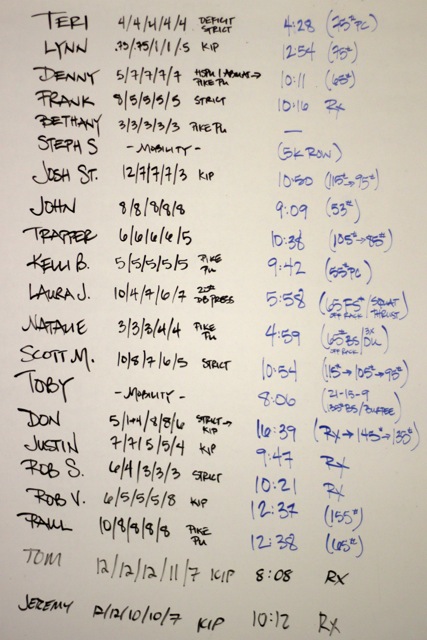 TERI 4/4/4/4/4 DEFICIT STRICT 4:28 (75# PC)
LYNN .75/.75/1/1/.5 KIP 12:54 (95#)
DENNY 5/7/7/7/7 HSPU/ABMAT→ PIKE PU 10:11 (65#)
FRANK 8/5/5/5/5 STRICT 10:16 RX
BETHANY 3/3/3/3/3 PIKE PU —
STEPH S - MOBILITY - (5K ROW)
JOSH ST. 12/7/7/7/3 KIP 10:50 (115#→95#)
JOHN 8/8/8/8/8 9:09 (53#)
TRAPPER 6/6/6/6/5 10:38 (105#→85#)
KELLI B. 5/5/5/5/5 PIKE PU 9:42 (55# PC)
LAURA J. 10/4/7/6/7 20# DB PRESS 5:58 (65 FS# OFF RACK / SQUAT THRUST)
NATALIE 3/3/3/4/4 PIKE PU 4:59 (65# BS OFF RACK / 3X DU)
SCOTT M. 10/8/7/6/5 STRICT 10:54 (115#→105#→95#)
TOBY - MOBILITY - 8:06 (21-15-9 135# BS/BURPEE)
DON 5/1+4/8/8/6 STRICT→ KIP 16:39 (RX→145#→135#)
JUSTIN 7/7/5/5/4 KIP 9:47 RX
ROB S. 6/4/3/3/3 STRICT 10:21 RX
ROB V. 6/5/5/5/8 KIP 12:37 (155#)
PAUL 10/8/8/8/8 PIKE PU 12:38 (65#)
TOM 12/12/12/11/7 KIP 8:08 RX
JEREMY 12/12/10/10/7 KIP 10:12 RX